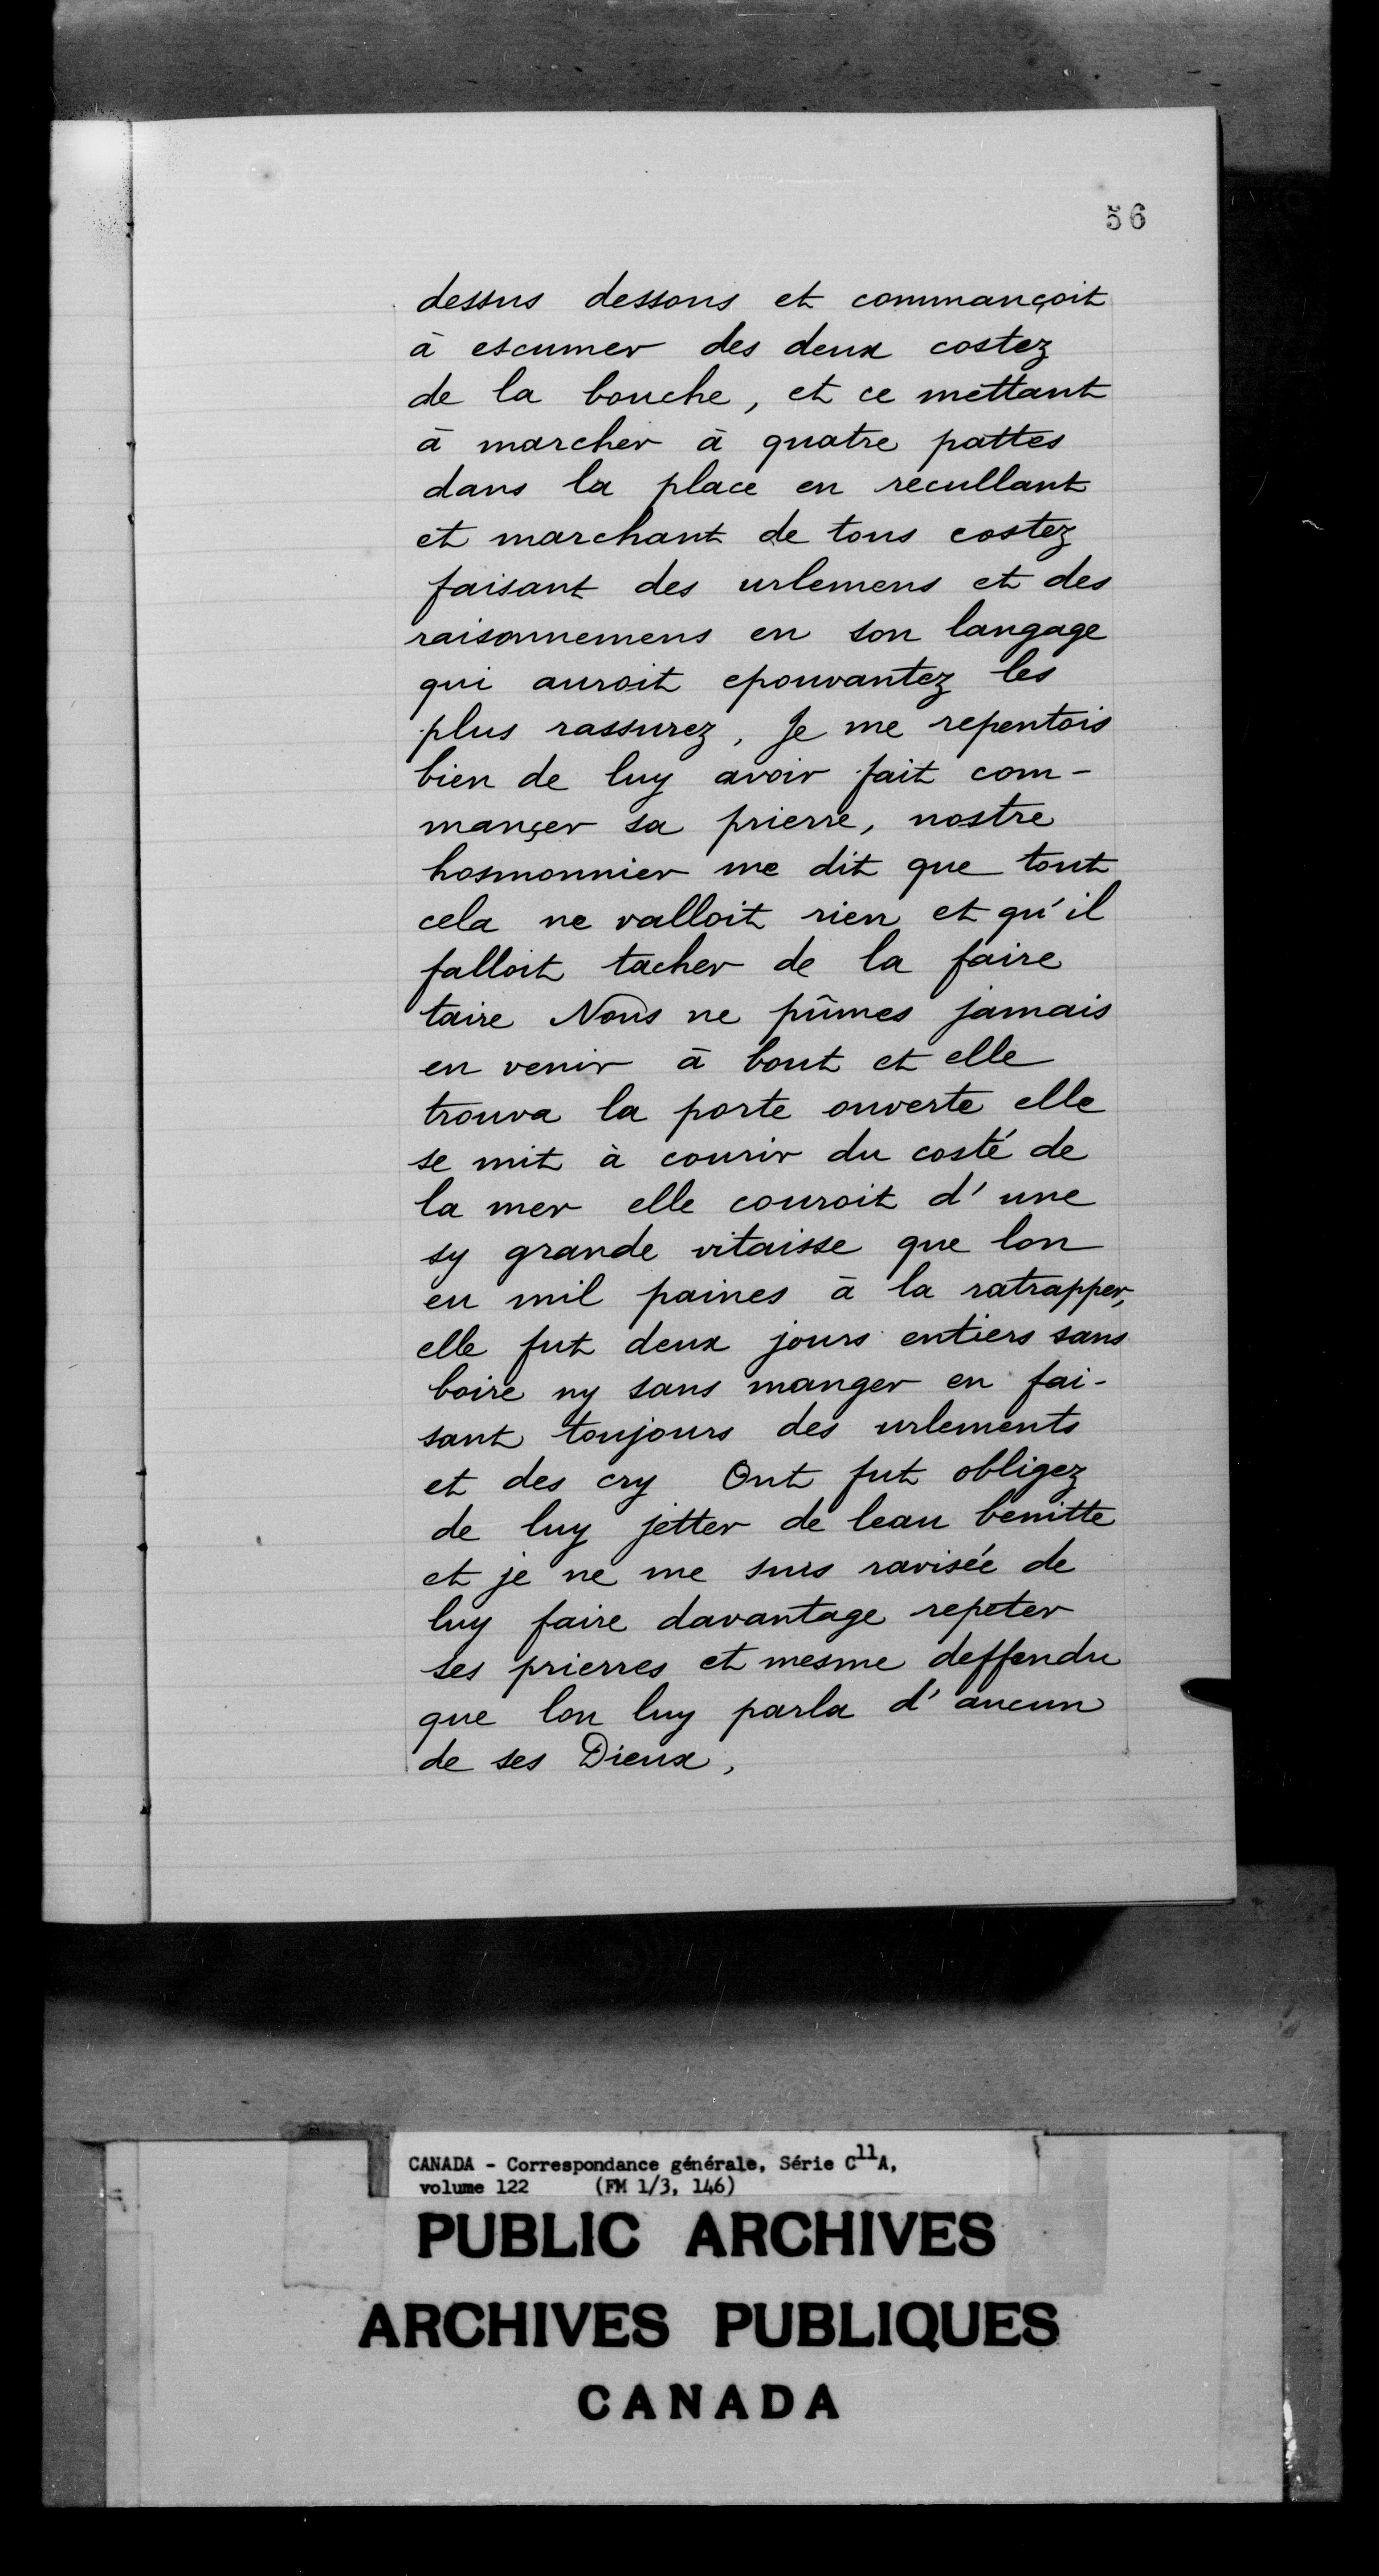 56
dessus dessous et commançoit
à escumer des deux costez
de la bouche, et ce mettant
à marcher à quatre pattes
dans la place en recullant
et marchant de tous costez
faisant des urlemens et des
raisonnemens en son langage
qui auroit epouvantez les
plus rassurez, Je me repentois
bien de luy avoir fait com-
mançer sa prierre, nostre
hosmonnier me dit que tout
cela ne valloit rien et qu'il
falloit tacher de la faire
taire Nous ne pûmes jamais
en venir à bout et elle
trouva la porte ouverte elle
se mit à courir du costé de
la mer elle couroit d'une
sy grande vitaisse que lon
eu mil paines à la ratrapper,
elle fut deux jours entiers sans
boire ny sans manger en fai-
sant toujours des urlements
et des cry Ont fut obligez
de luy jetter de leau benitte
et je ne me suis ravisée de
luy faire davantage repeter
ses prierres et mesme deffendu
que lon luy parla d'aucun
de ses Dieux,
CANADA - Correspondance générale, Série C11A,
volume 122 (FM 1/3, 146)
PUBLIC ARCHIVES
ARCHIVES PUBLIQUES
CANADA